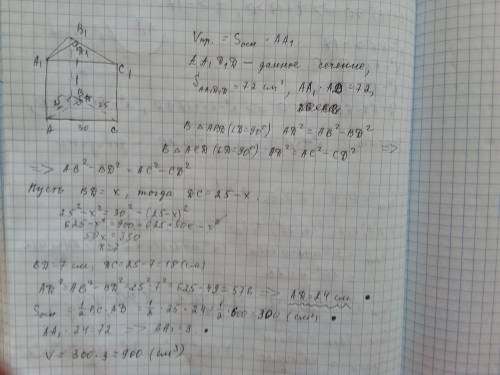 B₁
D₁
A₁
C₁
B
25
25
A
30
C
Vпр. = Sосн · AA₁
AA₁D₁D — данное сечение,
S AA₁D₁D = 72 см², AA₁ · AD = 72,
В △ABD (∠D=90°) AD² = AB² − BD²
В △ACD (∠D=90°) AD² = AC² − CD² =>
=> AB² − BD² = AC² − CD²
Пусть BD = x, тогда DC = 25 − x.
25² − x² = 30² − (25−x)²
625 − x² = 900 − 625 + 50x − x²
50x = 350
x = 7
BD = 7 см, DC = 25 − 7 = 18 (см)
AD² = AB² − BD² = 25² − 7² = 625 − 49 = 576 => AD = 24 см
Sосн = 1/2 BC · AD = 1/2 · 25 · 24 = 1/2 · 600 = 300 (см²)
AA₁ · 24 = 72 => AA₁ = 3
V = 300 · 3 = 900 (см³)